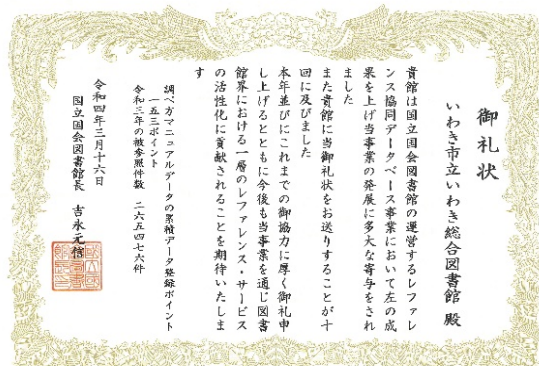 御礼状
いわき市立いわき総合図書館 殿
貴館は国立国会図書館の運営するレファレ
ンス協同データベース事業において左の成
果を上げ当事業の発展に多大な寄与をされ
ました
また貴館に当御礼状をお送りすることが十
回に及びました
本年並びにこれまでの御協力に厚く御礼申
し上げるとともに今後も当事業を通じ図書
館界における一層のレファレンス・サービス
の活性化に貢献されることを期待いたしま
す
調べ方マニュアルデータの累積データ登録ポイント
一五三ポイント
令和三年の被参照件数 二六五四七六件
令和四年三月十六日
国立国会図書館長 吉永元信